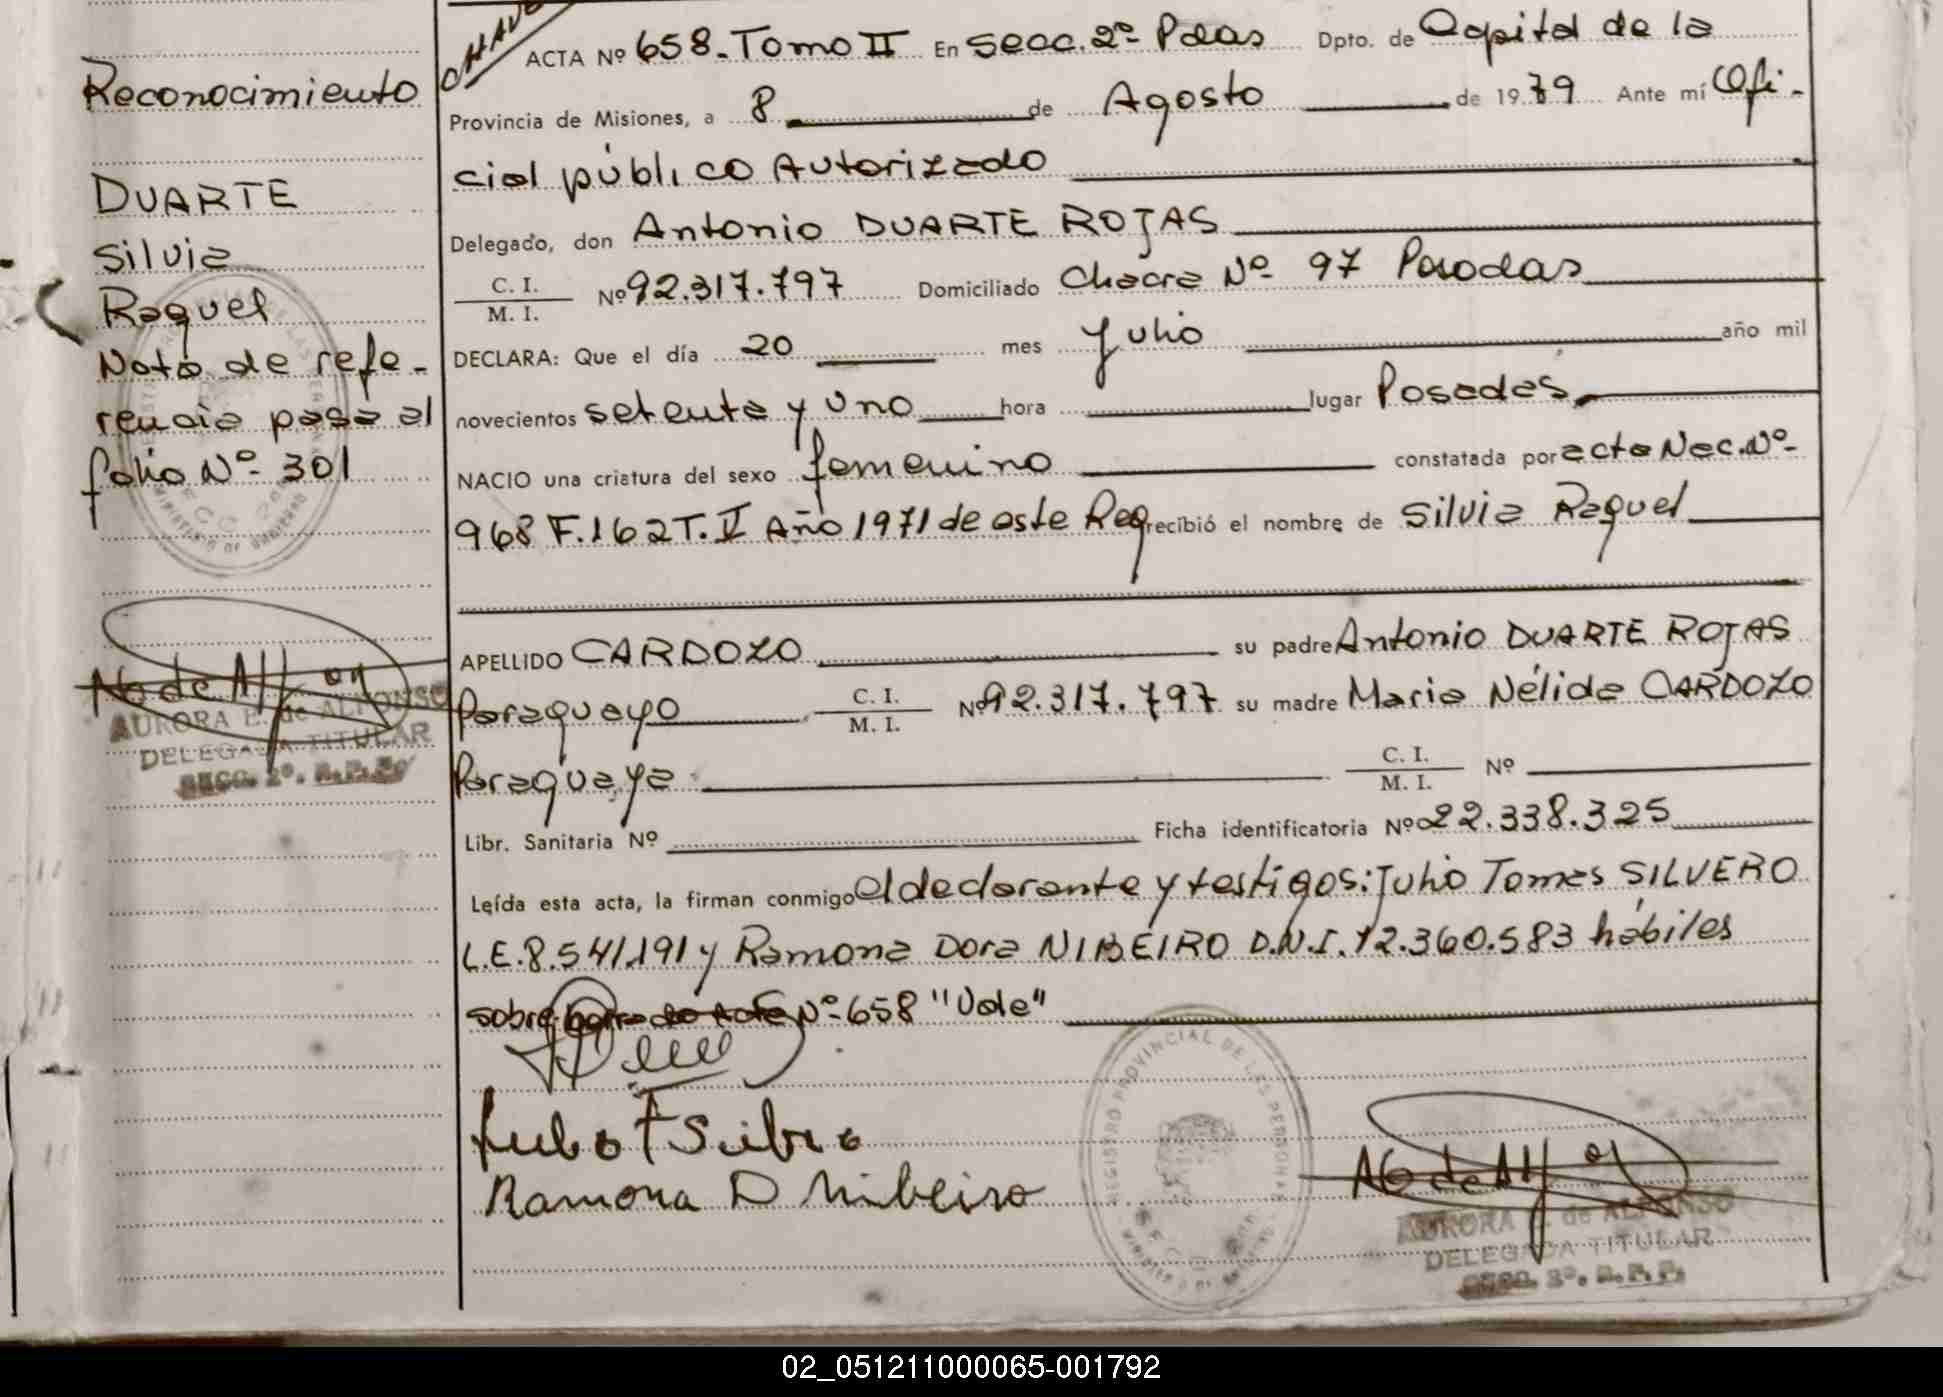 Reconocimiento
DUARTE
Silvia
Raquel
Nota de refe-
rencia pasa al
folio Nº 301
AURORA E. de ALFONSO
DELEGADA TITULAR
SECC. 2º. R.P.P.
ACTA Nº 658. Tomo II En Secc. 2º Pdas Dpto. de Capital de la
Provincia de Misiones, a 8 de Agosto de 1979 Ante mí Ofi-
cial público Autorizado
Delegado, don Antonio DUARTE ROJAS
C. I. / M. I. Nº 92.317.797 Domiciliado Chacra Nº 97 Posadas
DECLARA: Que el día 20 mes Julio año mil
novecientos setenta y uno hora lugar Posadas
NACIO una criatura del sexo femenino constatada por acta Nac. Nº
968 F.162 T. II Año 1971 de este Reg recibió el nombre de Silvia Raquel
APELLIDO CARDOZO su padre Antonio DUARTE ROJAS
Paraguayo C. I. / M. I. Nº 92.317.797 su madre Maria Nélida CARDOZO
Paraguaya C. I. / M. I. Nº
Libr. Sanitaria Nº Ficha identificatoria Nº 22.338.325
Leída esta acta, la firman conmigo el declarante y testigos: Julio Tomas SILVERO
L.E. 8.541.191 y Ramona Dora NIBEIRO D.N.I. 12.360.583 hábiles
sobre borrado Acta Nº 658 "Vale"
Ramona D Nibeiro
REGISTRO PROVINCIAL DE LAS PERSONAS
AURORA E. de ALFONSO
DELEGADA TITULAR
SECC. 2º. R.P.P.
02_051211000065-001792